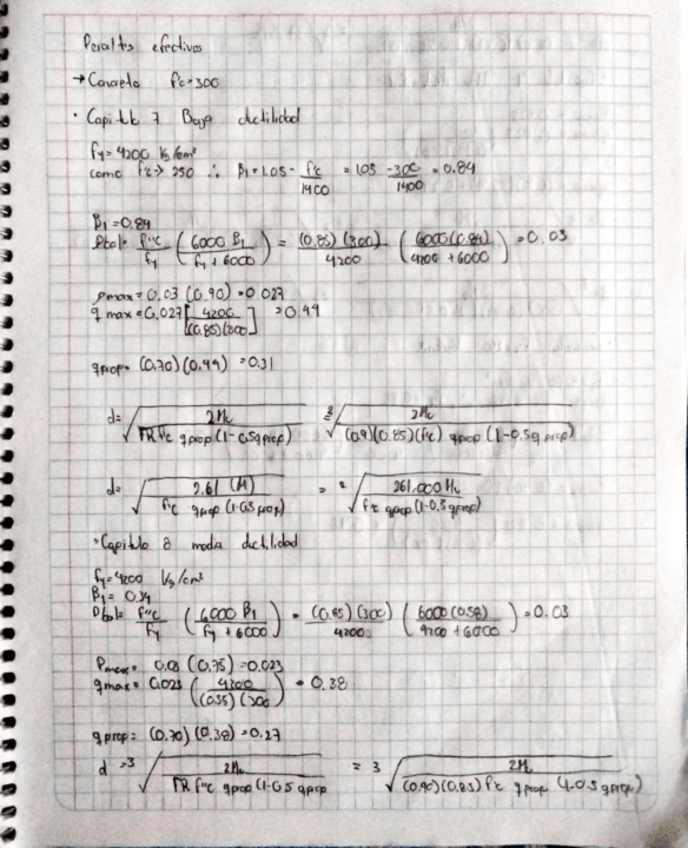 Peraltes efectivos
→ Concreto f'c=300
· Capitulo 7 Baja ductilidad
fy=4200 kg/cm²
como f'c > 250 ∴ β1=1.05 - f'c/1400 = 1.05 - 300/1400 = 0.84
β1=0.84
ρbal= f''c/fy (6000 β1/fy+6000) = (0.85)(300)/4200 (6000(0.84)/4200+6000) =0.03
ρmax=0.03 (0.90) =0.027
q max=0.027[4200/(0.85)(300)] =0.44
qprop= (0.70)(0.44) =0.31
d= √(2Mu/FR f''c qprop(1-0.5qprop)) = ³√(2Mu/(0.9)(0.85)(f'c) qprop (1-0.5q prop))
d= √(2.61 (M)/f'c qprop (1-0.5 prop)) = √(261,000 Mu/f'c qprop(1-0.5 qprop))
· Capitulo 8 media ductilidad
fy=4200 kg/cm²
β1=
ρbal= f''c/fy (6000 β1/fy+6000) = (0.85)(300)/4200 (6000 /4200+6000) =0.03
Pmax= 0.03 (0.75) =0.023
qmax= 0.023 (4200/(0.85)(300) = 0.38
q prop= (0.70)(0.38) =0.27
d =3 √(2Mu/FR f''c qprop (1-0.5 qprop = 3 √(2M/(0.90)(0.85) f'c q prop (1-0.5 qprop)